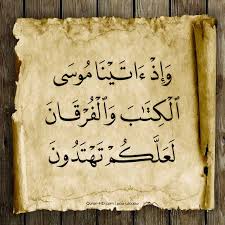 وَإِذْ ءَاتَيْنَا مُوسَى
ٱلْكِتَٰبَ وَٱلْفُرْقَانَ
لَعَلَّكُمْ تَهْتَدُونَ